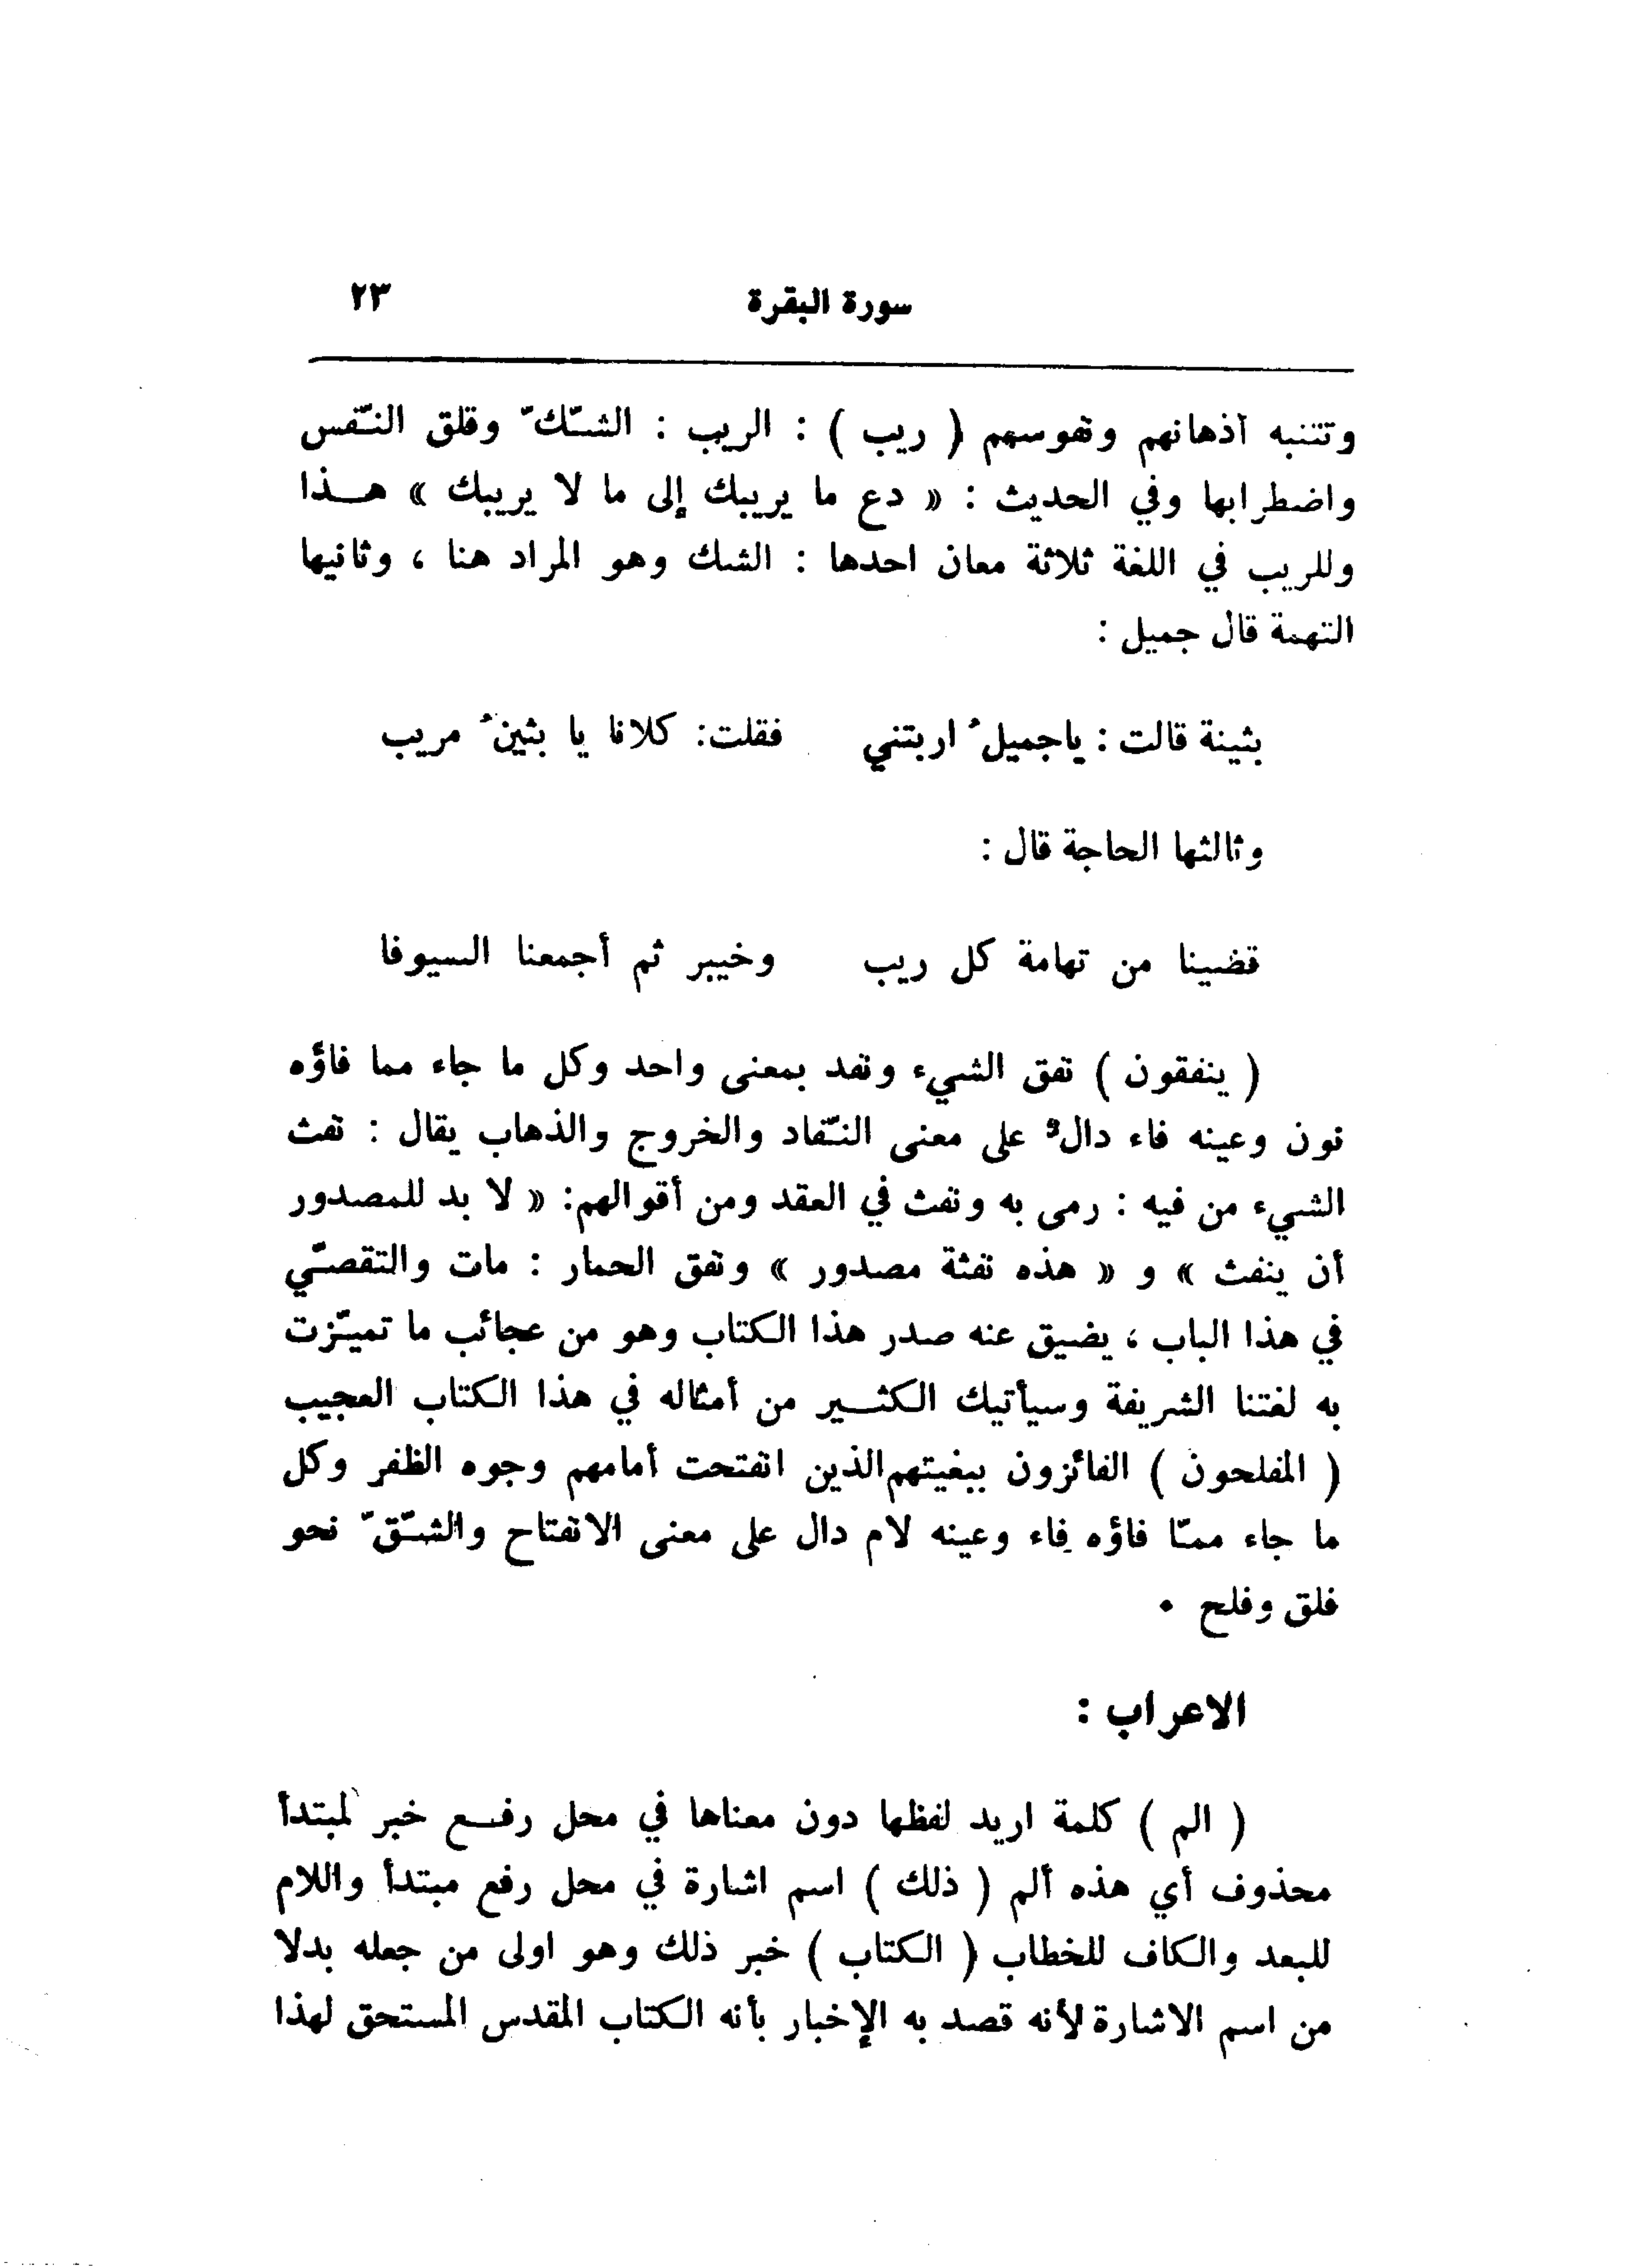 سورة البقرة ٢٣
وتتنبه أذهانهم ونفوسهم ( ريب ) : الريب : الشّكّ وقلق النّفس
واضطرابها وفي الحديث : « دع ما يريبك إلى ما لا يريبك » هـذا
وللريب في اللغة ثلاثة معان احدها : الشك وهو المراد هنا ، وثانيها
التهمة قال جميل :
بثينة قالت : ياجميلُ اربتني فقلت: كلانا يا بثينُ مريب
وثالثها الحاجة قال :
قضينا من تهامة كل ريب وخيبر ثم أجمعنا السيوفا
( ينفقون ) نفق الشيء ونفد بمعنى واحد وكل ما جاء مما فاؤه
نون وعينه فاء دالٌ على معنى النّفاد والخروج والذهاب يقال : نفث
الشيء من فيه : رمى به ونفث في العقد ومن أقوالهم: « لا بد للمصدور
أن ينفث » و « هذه نفثة مصدور » ونفق الحمار : مات والتقصّي
في هذا الباب ، يضيق عنه صدر هذا الكتاب وهو من عجائب ما تميّزت
به لغتنا الشريفة وسيأتيك الكثـير من أمثاله في هذا الكتاب العجيب
( المفلحون ) الفائزون ببغيتهم الذين انفتحت أمامهم وجوه الظفر وكل
ما جاء ممّا فاؤه فاء وعينه لام دال على معنى الانفتاح والشّقّ نحو
فلق وفلح ٠
الاعراب :
( الم ) كلمة اريد لفظها دون معناها في محل رفـع خبر لمبتدأ
محذوف أي هذه ألم ( ذلك ) اسم اشارة في محل رفع مبتدأ واللام
للبعد والكاف للخطاب ( الكتاب ) خبر ذلك وهو اولى من جعله بدلا
من اسم الاشارة لأنه قصد به الإخبار بأنه الكتاب المقدس المستحق لهذا